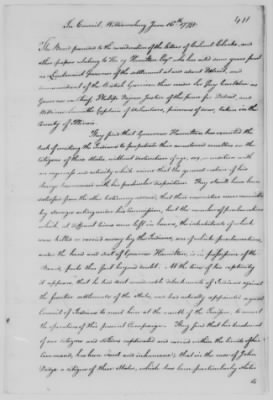 In Council, Williamsburg June 16th 1779.
The Board proceeded to the consideration of the letters of Colonel Clarke, and
other papers relating to Henry Hamilton Esqr who has acted some years past
as Lieutenant Governor of the settlement at and about Detroit, and
commandant of the British Garrison there under Sir Guy Carleton as
Governor in Chief; Philip Dejean Justice of the peace for Detroit, and
William Captain of Volunteers, prisoners of war, taken in the
County of Illinois.
They find that Governor Hamilton has executed the
task of exciting the Indians to perpetrate their accustomed cruelties on the
citizens of these states, without distinction of age, sex, or condition with
an eagerness and activity which evince that the general nature of his
charge harmonized with his particular disposition. They should have been
satisfied from the other testimony adduced, that these enormities were committed
by savages acting under his commission, but the number of proclamations
which, at different times were left in houses, the inhabitants of which
were killed or carried away by the Indians, one of which proclamations,
under the hand and seal of Governor Hamilton, is in possession of the
Board, puts this fact beyond doubt. At the time of his captivity
it appears, that he had sent considerable detachments of Indians against
the frontier settlements of these states, and had actually appointed a great
Council of Indians to meet him at the mouth of the Tanissee, to concert
the operations of this present Campaign. They find that his treatment
of our citizens and soldiers, captivated and carried within the limits of his
command, has been cruel and inhumane; that in the case of John
Dodge a citizen of these states, which has been particularly stated